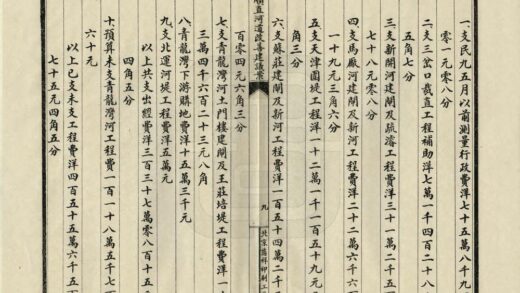 一、支民九五月以前測量行政費洋七十五萬八千九
零一元零八分
二、支三岔口裁直工程補助洋七萬一千四百二十八
五角七分
三、支新開河建閘及疏濬工程費洋三十一萬二千五
七十八元零八分
四、支馬廠河建閘及新河工程費洋二十二萬六千
一十九元三角六分
五、支天津圍堤工程洋一十二萬一千一百五十九元
角三分
六、支蘇莊建閘及新河工程洋一百五十四萬二千
百零四元六角三分
順直河道改善建議案
九
北京舊祥印刷工
七、支青龍灣河土門樓建閘及王莊培堤工程費洋一十
三萬四千六百二十三元八角
八、青龍灣下游購地費洋十五萬三千元
九、支北運河堤工費洋五萬元
以上共支出經費洋三百三十七萬零八百十五
四角五分
十、預算未支青龍灣河工程費一百一十八萬五千七
六十元
以上已支未支工程費洋四百五十五萬六千五
七十五元四角五分